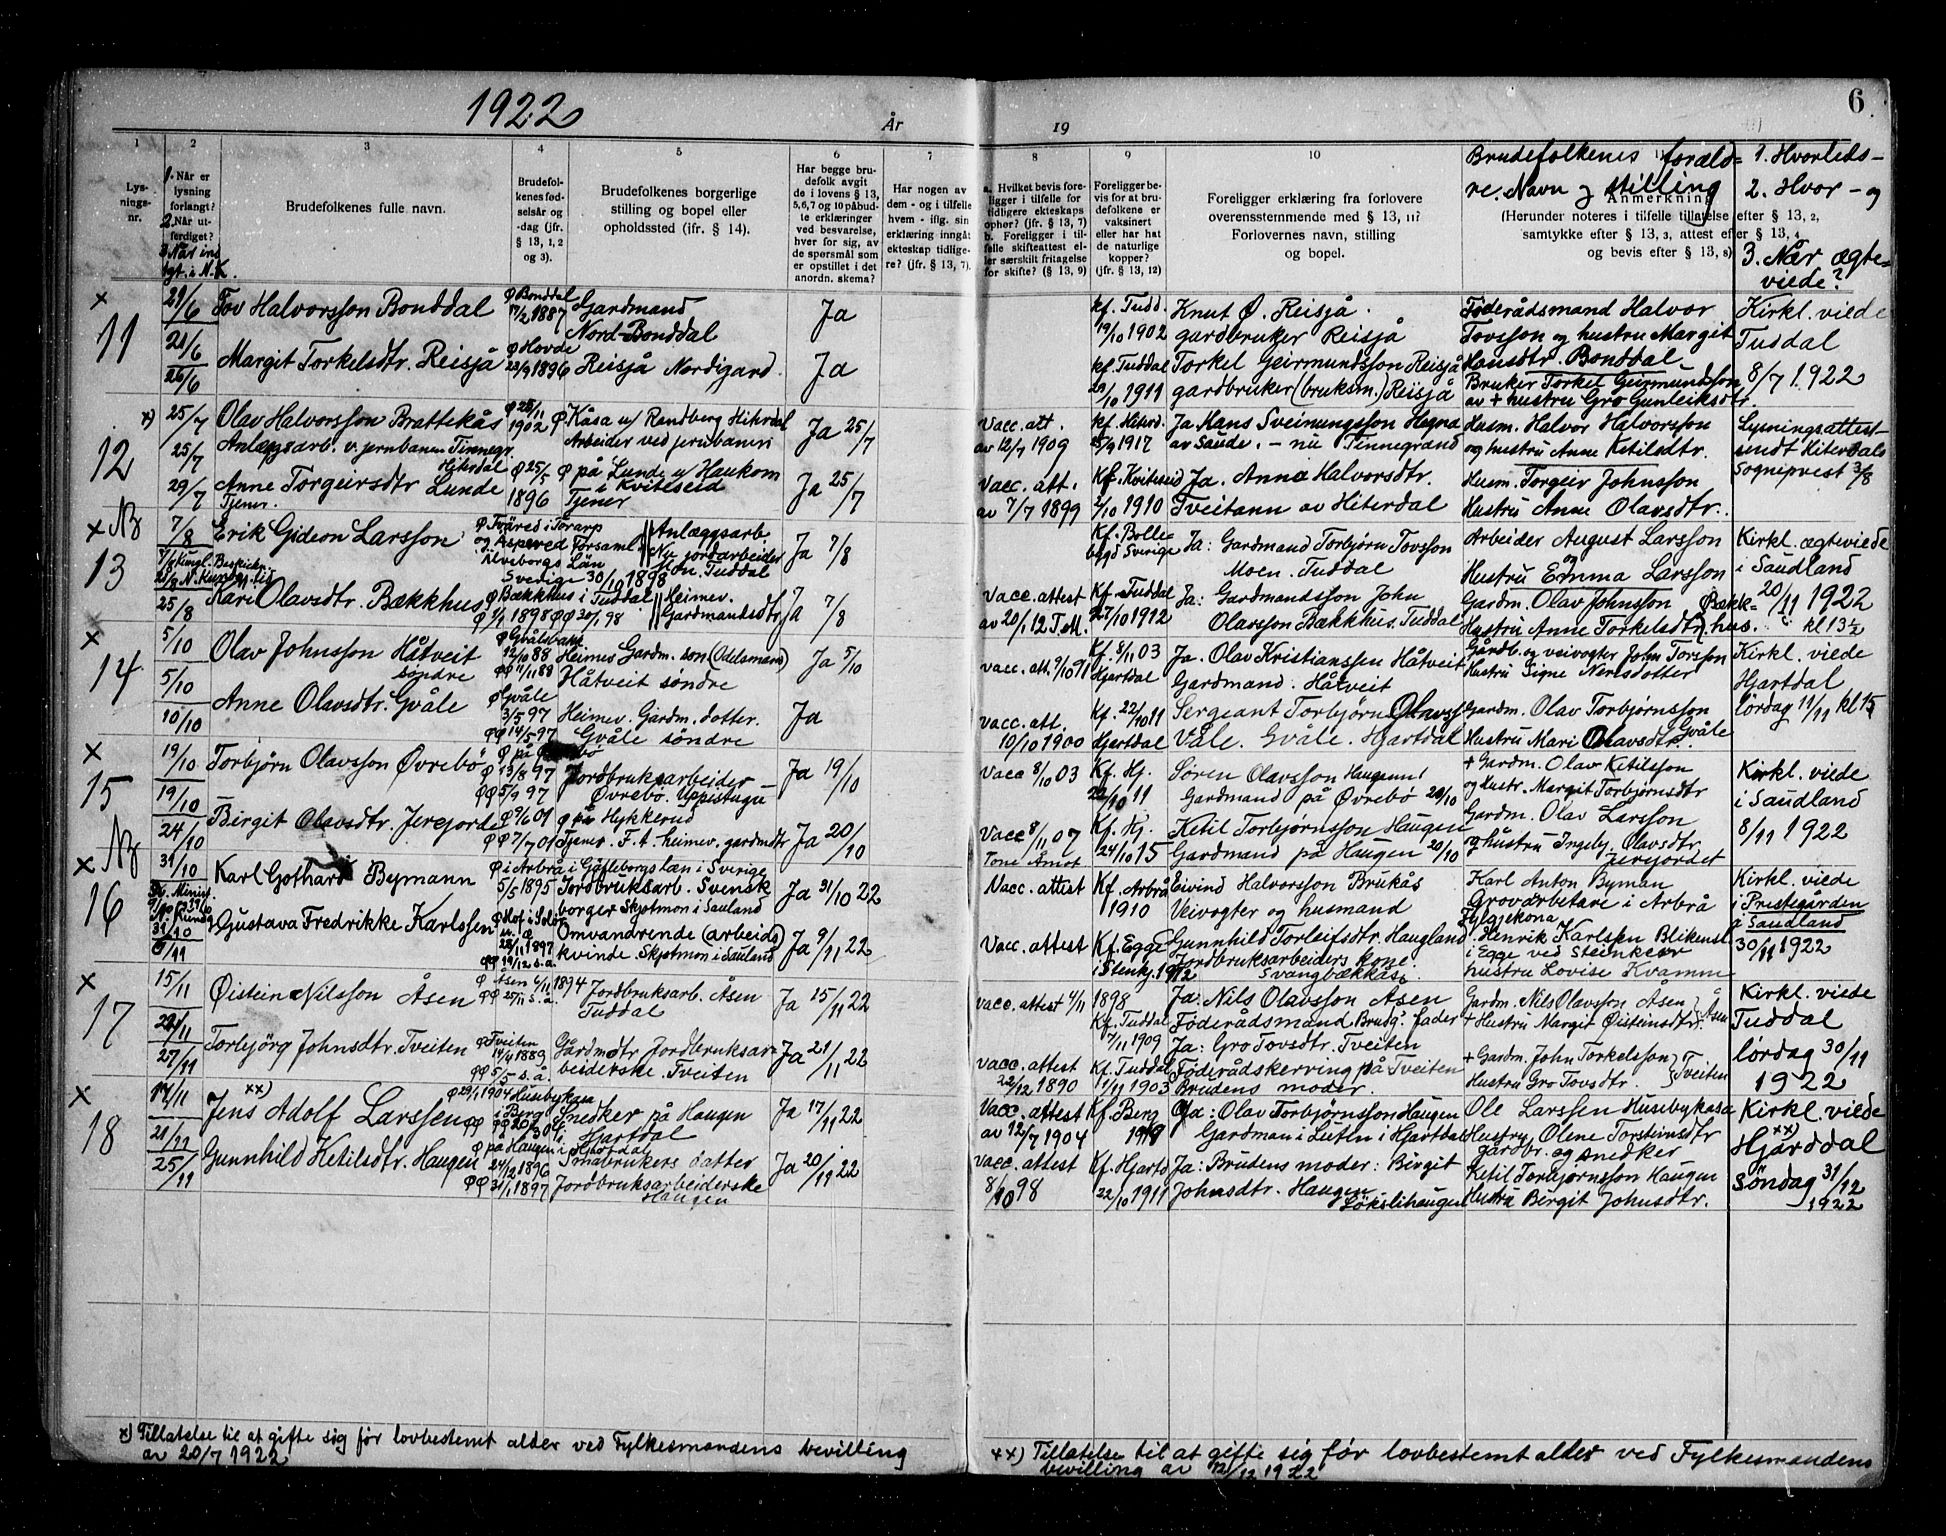 1922
År
19
6
1
2
3
4
5
6
7
8
9
10
Lys-
nings-
nr.
1. Når er
lysning
forlangt?
2. Når ut-
ferdiget?
Brudefolkenes fulle navn.
Brudefol-
kenes fød-
selsår og
-dag (jfr.
§ 13, 1, 2
og 3).
Brudefolkenes borgerlige
stilling og bopel eller
opholdssted (jfr. § 14).
Har begge bru-
defolk avgit
de i lovens § 13,
5, 6, 7 og 10 påbud-
te erklæringer
ved besvarelse,
hver for sig, av
de spørsmål som
er opstillet i det
anordn. skema?
Har nogen av
dem - og i tilfelle
hvem - iflg. sin
erklæring inngått
ekteskap tidlige-
re? (jfr. § 13, 7).
a. Hvilket bevis fore-
ligger i tilfelle for
tidligere ekteskaps
ophør? (jfr. § 13, 7)
b. Foreligger i til-
felle skifteattest el-
ler særskilt fritagelse
for skifte? (§ 13, 9)
Foreligger be-
vis for at bru-
defolkene er
vaksinert
eller har hat
de naturlige
kopper?
(jfr. § 13, 12)
Foreligger erklæring fra forlovere
overensstemmende med § 13, 11?
Forlovernes navn, stilling
og bopel.
Brudefolkenes foræld-
re. Navn og stilling
Anmerkning
(Herunder noteres i tilfelle tillatelse efter § 13, 2,
samtykke efter § 13, 3, attest efter § 13, 4
og bevis efter § 13, 8)
1. Hvorleds-
2. Hvor - og
3. Når ægte-
viede?
x
11
21/6
26/6
Tov Halvorsson Bonddal
Ø Bonddal
17/2 1887
Gardmand
Nord-Bonddal
Ja
kf. Tudd.
19/10 1902
Knut Ø. Reisjå
gardbruker Reisjå
Føderådsmand Halvor
Tovsson og hustru Margit
Hansdtr. Bonddal
Kirkl. viede
Tuddal
8/7 1922
Margit Torkelsdtr. Reisjå
Ø Hovde
23/9 1896
Reisjå Nordigard
Ja
kf. Tuddal
1911
Torkel Geirmundsson Reisjå
gardbruker (bruksm.) Reisjå
Bruker Torkel Geirmundson
av + hustru Gro Gunleiksdtr.
x)
12
25/7
25/7
29/7
Olav Halvorsson Brattekås
Anlægsarb. v. jernbanen Tinnegr.
Hiterdal
Ø 25/11
1902
Ø Kåsa u/ Rendberg Hiterdal
Arbeider ved jernbanen
Ja 25/7
Vacc. att.
av 12/7 1909
kf. Hiterd.
1917
Ja Hans Sveinungsson Hegna
av Saude. - nu Tinnegrand
Husm. Halvor Halvorsson
og hustru Anne Ketilsdtr.
Lysningsattest
sendt Hiterdals
Sogneprest 3/8
Anne Torgeirsdtr Lunde
Tjener.
Ø 25/5
1896
Ø på Lunde u/ Haukom
i Kviteseid
Tjener
Ja 25/7
Vacc. att.
av 7/7 1899
Kf. Kviteseid
2/10 1910
Ja. Anne Halvorsdtr.
Tveitann av Hiterdal
Husm. Torgeir Johnsson
Hustru Anne Olavsdtr.
x NB
13
7/8
25/8
Erik Gideon Larsson
Ø Tväred i Torarp
og Aspered Forsaml.
Älvsborgs Län
Sverige 30/10 1898
Anlæggsarb.
Nu jordarbeider
Moen. Tuddal
Ja 7/8
Kf. Bolle-
bygd Sverige
Ja: Gardmand Torbjørn Tovsson
Moen. Tuddal
Arbeider August Larsson
og
Hustru Emma Larsson
Kirkl. ægteviede
i Saudland
20/11 1922
kl 13½
Kari Olavsdtr. Bækkhus
Ø Bækkhus i Tuddal
Ø 1/1 1898 ØØ 30/1 98
Heimev.
Gardmandsdtr
Ja 7/8
Vacc. attest
av 20/1 12 T.M.
Kf. Tuddal
27/10 1912
Ja: Gardmandsson John
Olavsson Bækkhus, Tuddal
Gardm. Olav Johnsson
Hustru Anne Torkelsdtr
Bækk-
hus.
x
14
5/10
5/10
10/10
Olav Johnsson Håtveit
søndre
Ø Gvålsbakk
12/10 88
ØØ 11/11 88
Heimev. Gardm. søn (Odelsmand)
Håtveit søndre
Ja 5/10
vacc. att. 9/10 91
Kf. 8/11 03
Hjartdal
Ja. Olav Kristianssen Håtveit
Gardmand. Håtveit
Gårdb. og veivogter John Torsson
Hustru Signe Nersdotter
Kirkl. viede
Hjartdal
lørdag 11/11 kl 15
Anne Olavsdtr. Gvåle
Ø Gvåle
3/5 97
ØØ 14/5 97
Heimev. Gardm. dotter.
Gvåle søndre
Ja
vacc. att.
10/10 1900
Kf. 22/10 11
Hjartdal
Sergeant Torbjørn Olavss.
Våle. Gvåle. Hjartdal
Gardm. Olav Torbjørnsson
Hustru Mari Olavsdtr. Gvåle
x
15
19/10
19/10
24/10
Torbjørn Olavsson Øvrebø
Ø 13/8 97
ØØ 5/9 97
Jordbruksarbeider
Øvrebø. Uppistugu
Ja 19/10
Vacc 8/10 03
Kf. Hj.
22/10 11
Søren Olavsson Haugenn!
Gardmand på Øvrebø 20/10
+ Gardm. Olav Ketilsson
og Hustr. Margit Torbjørnsdtr
Kirkl. viede
i Saudland
8/11 1922
Birgit Olavsdtr. Jerejorde
Ø 9/6 01
ØØ 7/7 01
Ø på Hykkerud
Tjener. F. A. heimev. gardmdtr
Ja 20/10
Vacc 8/11 07
Tone Amot
Kf. Hj.
24/10 15
Ketil Torbjørnsson Haugen
Gardmand på Haugen 20/10
Gardm. Olav Larsson
og hustru Ingebj. Olavsdtr.
Jerejordet
x NB
16
31/10
31/10
9/11
Karl Gothard Bymann
Ø i Arbrå i Gäfleborgs län i Sverige
5/5 1895
Jordbruksarb. Svensk
borger Skjotmon i Sauland
Ja 31/10 22
Vacc. attest
Kf. Arbrå
1910
Eivind Halvorsson Brukås
Veivogter og husmand
Karl Anton Byman
Grovarbetare i Arbrå
Kirkl. viede
i Prestegården
i Saudland
30/11 1922
Gustava Fredrikke Karlssen
Ø Hof i Solør
28/11 1897
ØØ 19/12 s.å.
Omvandrende (arbeids)
kvinde Skjotmon i Sauland
Ja 9/11 22
Vacc. attest
Kf. Egge
i Stenkj. 1912
Gunnhild Torleifsdtr. Haugland
Jordbruksarbeiders kone
Svangbækkås
Følgjekona
Henrik Karlsen Blikensl.
i Egge ved Steinkjer
hustru Lovise Kvamm
x
17
15/11
27/11
Øistein Nilsson Åsen
Ø Åsen 6/11 1894
ØØ 25/11 s.å.
Jordbruksarb. Åsen
Tuddal
Ja 15/11 22
Vacc. attest 4/11 1898
Kf. Tuddal
7/11 1909
Ja: Nils Olavsson Åsen
Føderådsmand Brudg. fader
Gardm. Nils Olavsson Åsen
+ Hustru Margit Øisteinsdtr.
Åsen
Kirkl. viede
Tuddal
lørdag 30/11
1922
Torbjørg Johnsdtr. Tveiten
Ø Tveiten
14/4 1889
ØØ 5/5 s.å.
Gårdmdtr Jordbruksar-
beiderske. Tveiten
Ja 21/11 22
vacc. attest
22/12 1890
Kf. Tuddal
1/11 1903
Ja: Gro Tovsdtr. Tveiten
Føderådskerring på Tveiten
Brudens moder.
+ Gardm. John Torkelsson
Hustru Gro Tovsdtr.
Tveiten
x
18
17/11
21/11
25/11
xx)
Jens Adolf Larssen
Ø 29/1 1904 Husebykasa
i Berg
ØØ 20/3 04
Snedker på Haugen
Hjartdal
Ja 17/11 22
Vacc. attest
av 12/7 1904
Kf. Berg
1919
Ja: Olav Torbjørnsson Haugen
Gardman i Lutln i Hjartdal
Ole Larssen Husebykasa
Hustru Olene Torsteinsdtr
gårdbr. og snedker
Kirkl. viede
xx)
Hjarddal
Søndag 31/12
1922
Gunnhild Ketilsdtr. Haugen
Ø på Haugen i Hjartdal
24/12 1896
ØØ 31/1 1897
Småbrukers datter
Jordbruksarbeiderske
Haugen
Ja 20/11 22
Vacc. attest
8/10 98
Kf. Hjartd
22/10 1911
Ja: Brudens moder: Birgit
Johnsdtr. Haugen
Løkslihaugen
Ketil Torbjørnsson Haugen
Hustru Birgit Johnsdtr.
x) Tillatelse til at gifte sig før lovbestemt alder ved Fylkesmandens bevilling
av 20/7 1922
xx) Tillatelse til at gifte sig før lovbestemt alder ved Fylkesmandens
bevilling av 12/12 1922